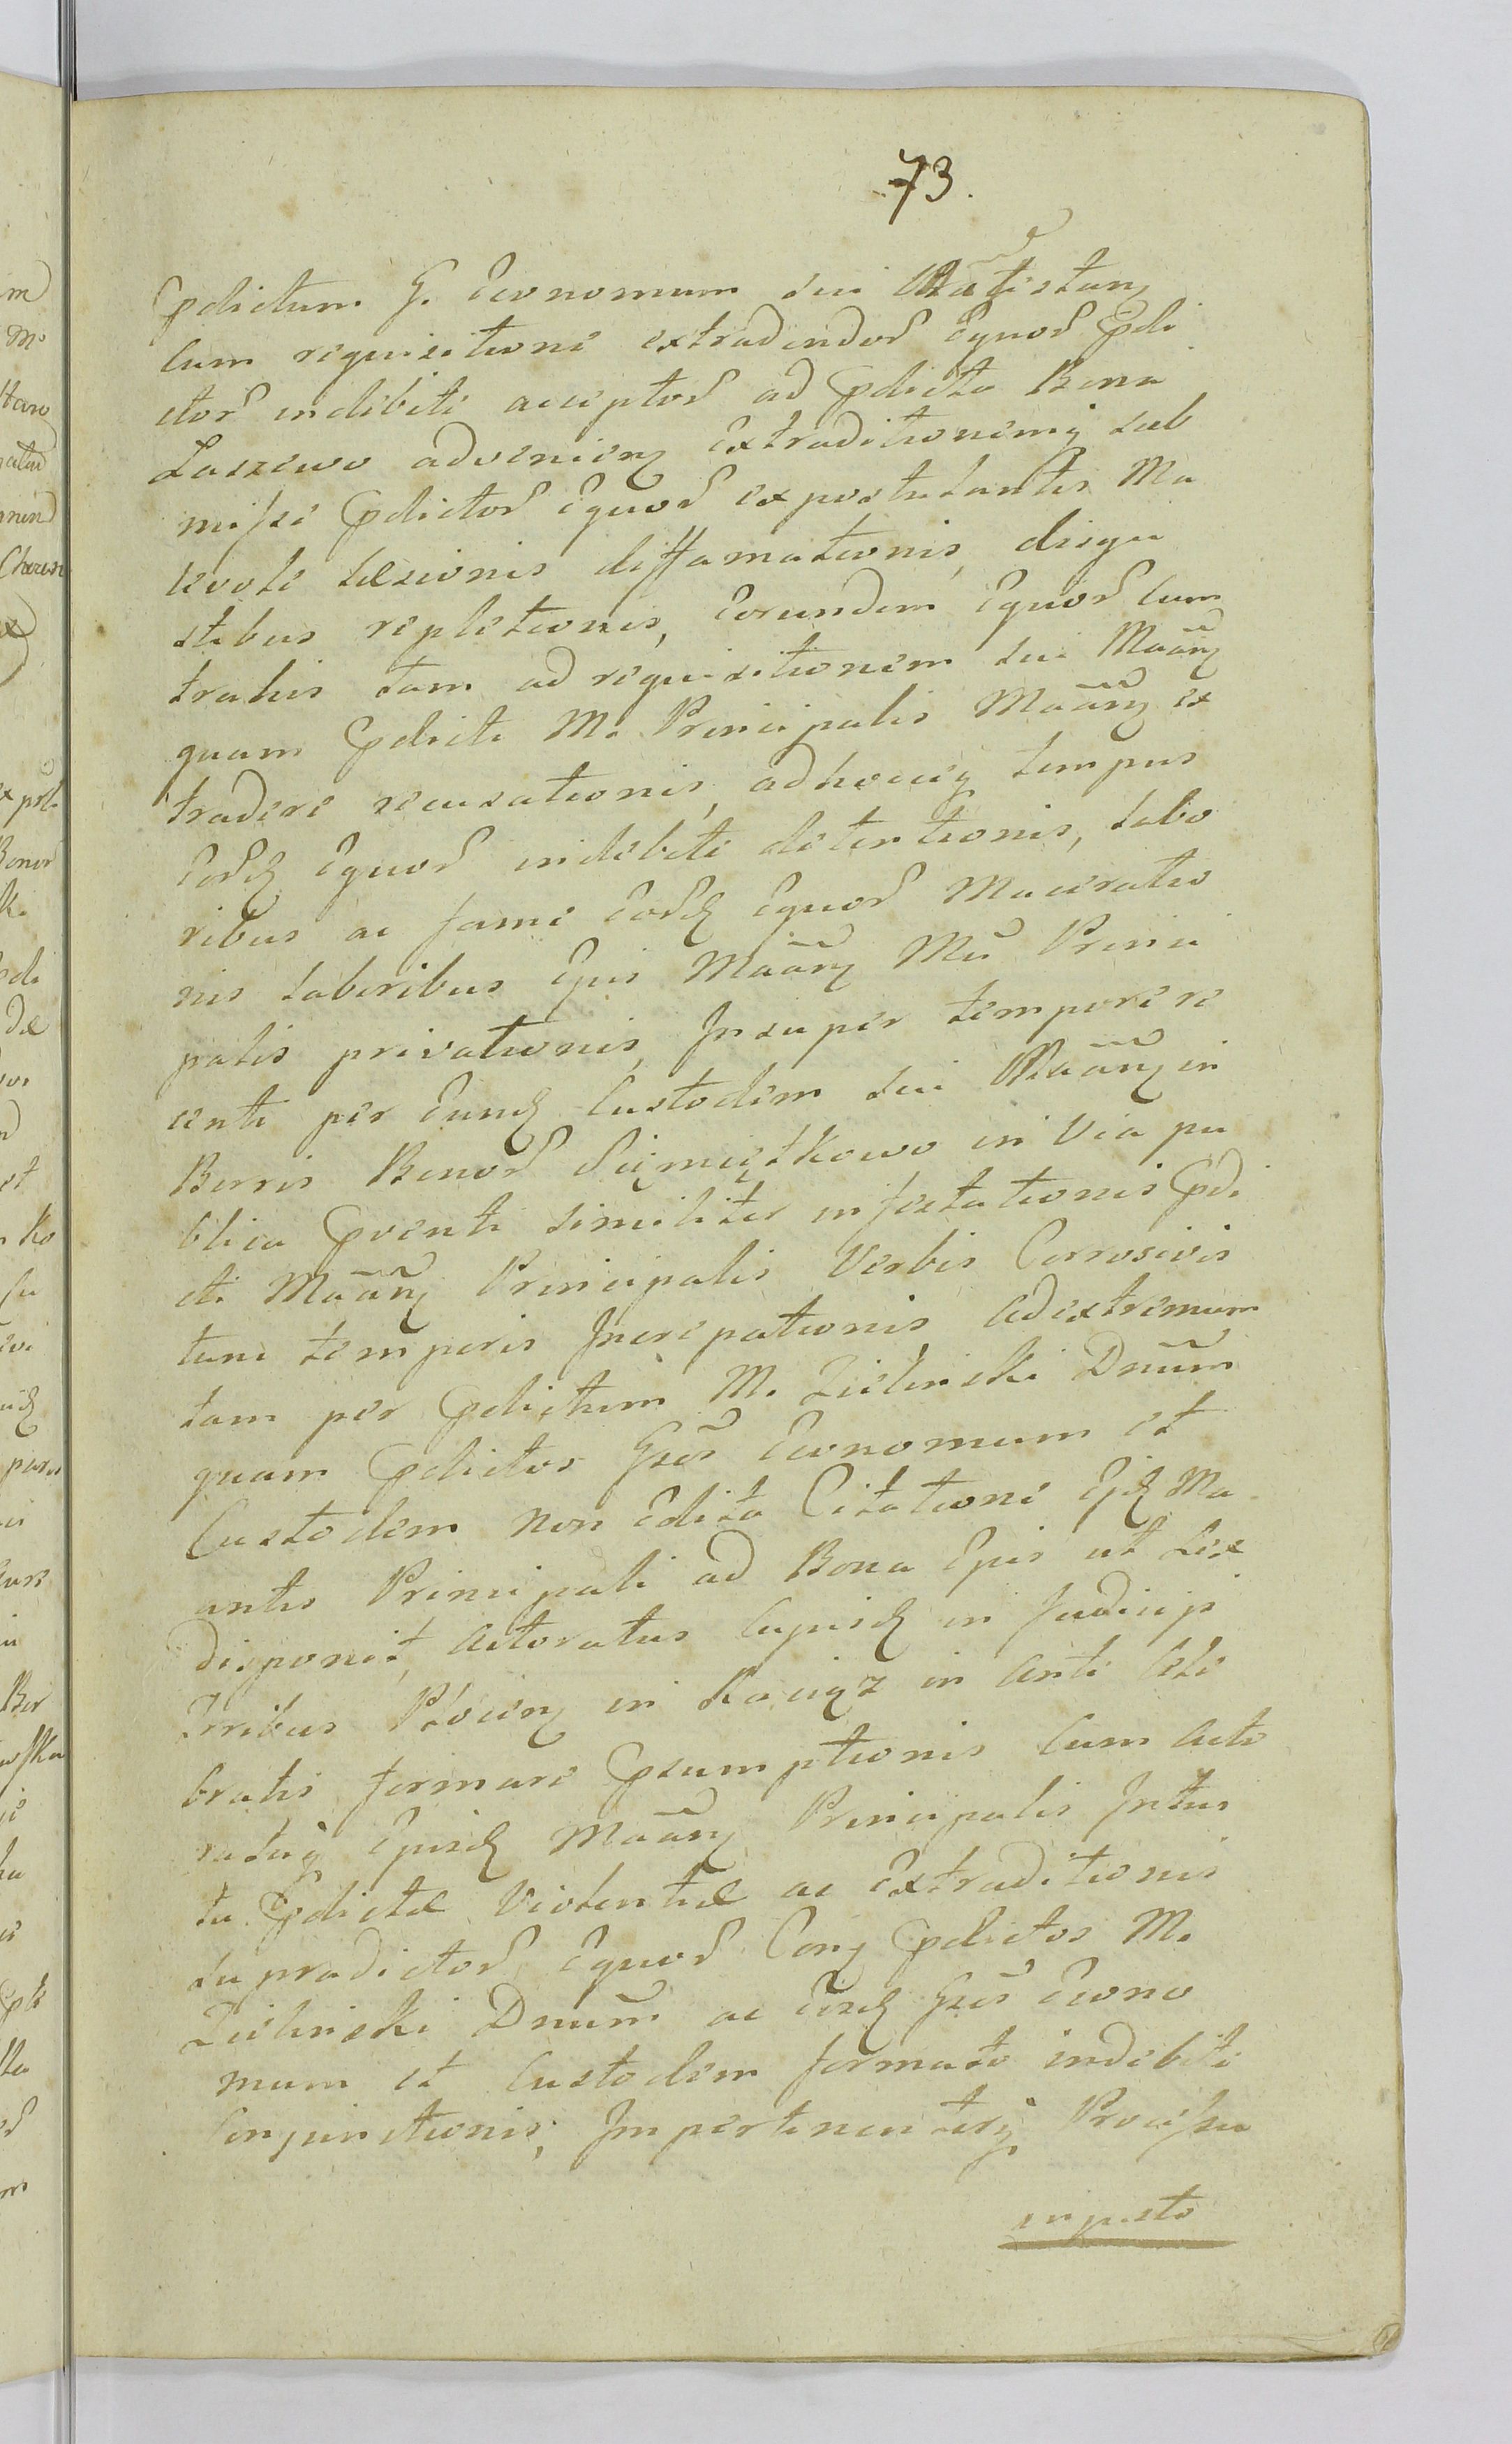 73.
Pdictum G. Œconomum sui Mattistan
cum requisitione extradendor Equor Pdi
ctor indebite acceptor ad Pdicta Bona
Laszewo advenien Extraditionemq sub
misse Pdictor Equor expostulantis Ma
levole Læsionis diffamationis, disgu
stibus repletionis, Eorundem Equor cum
trahis tam ad requisitionem sui Maan
quam Pdicti M. Principalis Maan ex
tradere recusationis, adhocuq tempus
Eord Equor indebite detentionis, labo
ribus ac fame Eord Equor Maceratio
nis laboribus Ejus Maan Mci Princi
palis privationis, Insuper tempore re
centi per Eund Custodem sui Maan in
Borris Bonor Siemiątkowo in Via pu
blica Pventi similiter infestationis Pdi
cti Maan Principalis Verbis Corrosivis
tunc temporis Increpationis ad extremum
tam per Pdictum M. Zielinski Dnum
quam Pdictos Gsos Œconomum et
Custodem non Edita Citatione Ejd Ma
antis Principali ad Bona Ejus ut Lex
disponit, Actoratus Cujusd in Judicijs
Trribus Plocen in Raciąż in Ante Cele
bratis formare Psumptionis cum Acto
ratuq Ejusd Maan Principalis Intui
tu Pdictæ Violentiæ ac Extraditionis
supradictor Equor Con Pdictos M.
Zielinski Dnum ac Eosd Gsos Œcono
mum et Custodem formato indebite
Conjunctionis, Impertinenterq Processu
injusto